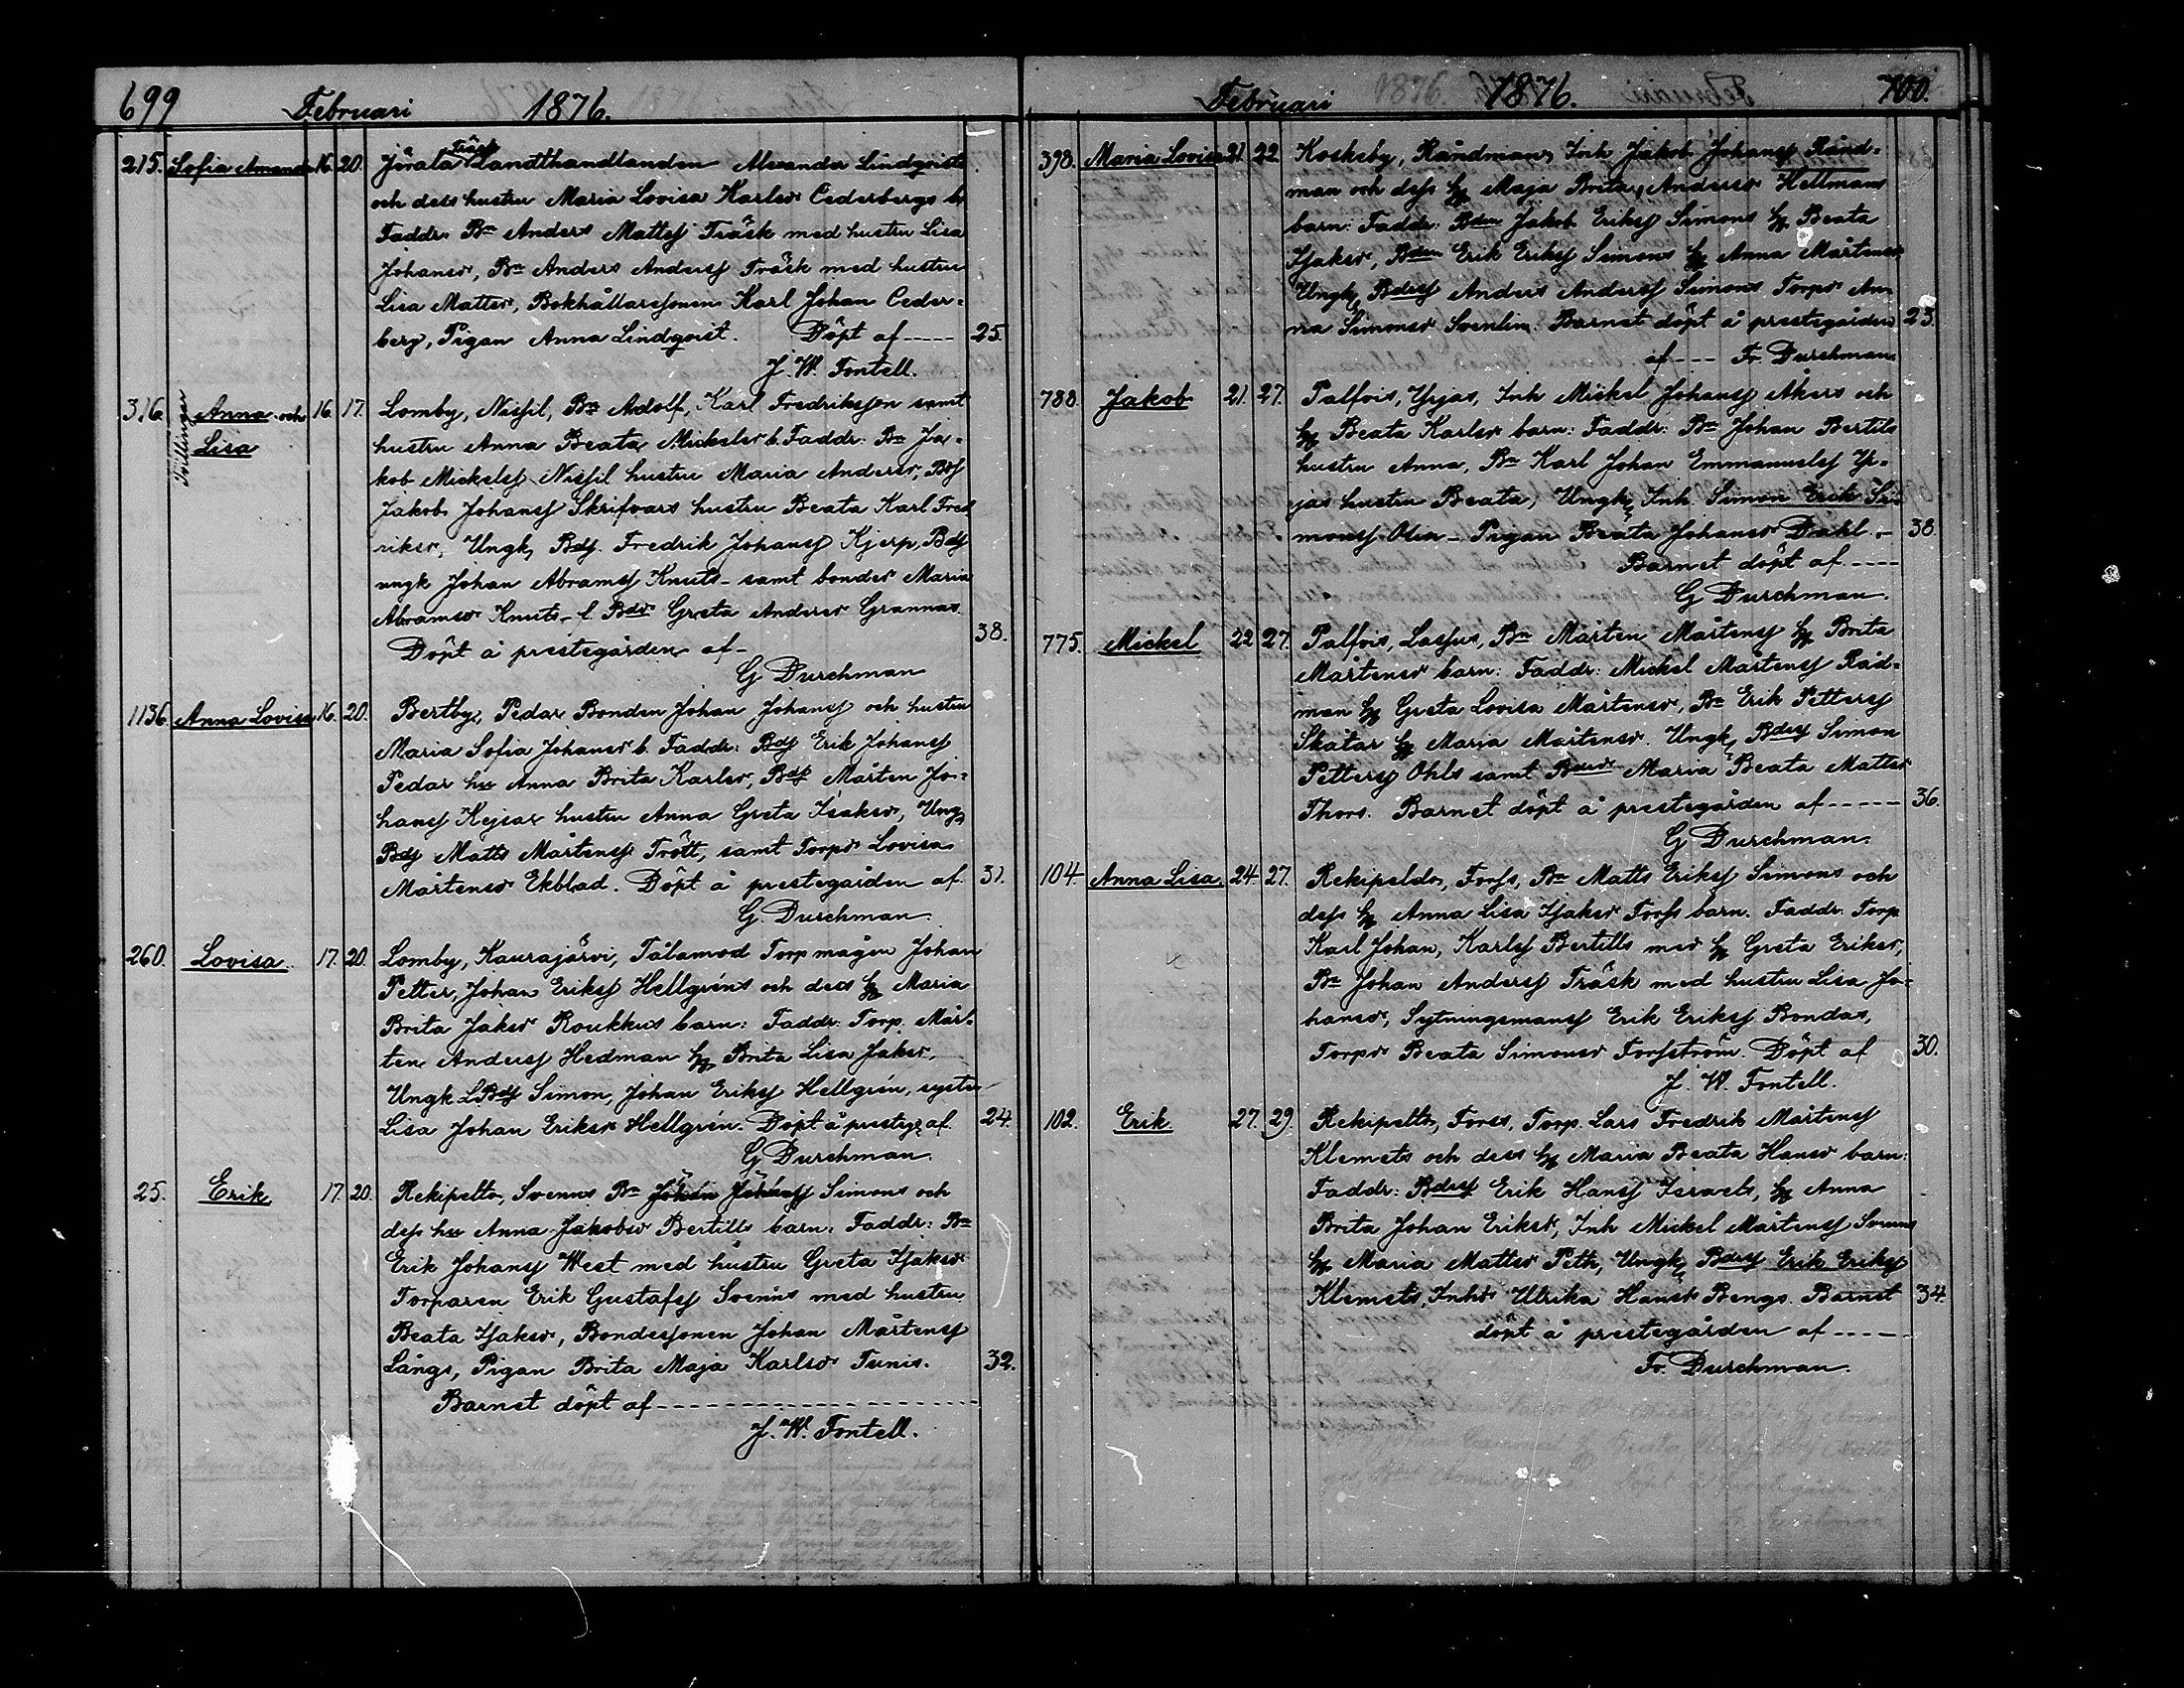 699 Februari 1876.
215. Sofia Amanda 16. 20. Jörala Träsk Landthandlanden Alexander Lindqvists
och dess hustru Maria Lovisa Karlsdr Cederbergs b.
Faddr. Bn Anders Mattsß Träsk med hustru Lisa
Johansdr, Bn Anders Andersß Träsk med hustru
Lisa Mattsdr, Bokhållaresonen Karl Johan Ceder-
berg, Pigan Anna Lindqvist. Döpt af ----- 25.
J. W. Fontell.
316. Tvillingar Anna och 16. 17. Lomby, Nissil, Bn Adolf, Karl Fredriksson samt
Lisa hustru Anna Beata Mickelsdr b. Faddr: Bn Ja-
kob Mickelsß Nissil hustru Maria Andersdr, Bdß
Jakob Johansß Skrifvars hustru Beata Karl Fred
riksdr, Ungk, Bdß. Fredrik Johansß Kjerp, Bdß
ungk Johan Abramsß Knuts - samt bondedr Maria
Abramsdr Knuts - l. Bdr Greta Andersdr Grannas.
Döpt å prestegården af - 38.
G Durchman
1136. Anna Lovisa 16. 20. Bertby, Pedar Bonden Johan Johansß och hustru
Maria Sofia Johansdr b. Faddr: Bdß Erik Johansß
Pedar hu Anna Brita Karlsdr, Bdß Mårten Jo-
hansß Kejsar hustru Anna Greta Isaksdr, Ung,
Bdß Matts Mårtensß Trött, samt Torpdr Lovisa
Mårtensdr Ekblad. Döpt å prestegården af. 31.
G. Durchman.
260. Lovisa. 17. 20. Lomby, Kaurajärvi, Tålamod Torpmågen Johan
Petter, Johan Eriksß Hellgréns och dess H Maria
Brita Jaksdr Roukkus barn: Faddr: Torp. Mår-
ten Andersß Hedman H Brita Lisa Jaksdr,
Ungk LBdß Simon, Johan Eriksß Hellgrén, syster
Lisa Johan Eriksdr Hellgrén. Döpt å prestg. af. 24.
G Durchman.
25. Erik 17. 20. Rekipelto, Svenns Bn Johan Johansß Simons och
dess hu Anna Jakobsdr Bertills barn: Faddr: Bn
Erik Johansß West med hustru Greta Isaksdr
Torparen Erik Gustafsß Svenns med hustru
Beata Isaksdr, Bondesonen Johan Mårtensß
Långs, Pigan Brita Maja Karlsdr Tunis. 32.
Barnet döpt af --------------------
J. W. Fontell.
Februari 1876. 700.
393. Maria Lovisa 21. 22. Koskeby, Rändman, Inh Jakob Johansß Ränd-
man och dess H Maja Brita Andersdr Hellmans
barn: Faddr: Bden Jakob Eriksß Simons H Beata
Isaksdr, Bden Erik Eriksß Simons H Anna Mårtensdr,
Ungk, Bdesß Anders Andersß Simons Torpdr An-
na Simonsdr Svenlin. Barnet döpt å prestegården 23.
af --- Fr. Durchman.
788. Jakob 21. 27. Palfvis, Yrjas, Inh Mickel Johansß Åkers och
H Beata Karlsdr barn: Faddr: Bn Johan Bertils
hustru Anna, Bn Karl Johan Emmanuelsß Yr-
jas hustru Beata, Ungk, Inh Simon Erik Si-
monsß Olin - Pigan Beata Johansdr Dahl. - 38.
Barnet döpt af ----
G Durchman.
775. Mickel 22 27. Palfvis, Lassus, Bn Mårten Mårtensß H Brita
Mårtensdr barn: Faddr: Mickel Mårtensß Råd-
man H Greta Lovisa Mårtensdr, Bn Erik Pettersß
Skatar H Maria Mårtensdr. Ungk, Bdesß Simon
Pettersß Ohls samt Bdesdr Maria Beata Mattsdr
Thors. Barnet döpt å prestegården af ----- 36.
G Durchman.
104. Anna Lisa. 24. 27. Rekipeldo, Forss, Bn Matts Eriksß Simons och
dess H Anna Lisa Isaksdr Forss barn. Faddr. Torp
Karl Johan, Karlsß Bertills med H Greta Eriksdr,
Bn Johan Andersß Träsk med hustru Lisa Jo-
hansdr, Sytningsmansß Erik Eriksß Bondas,
Torpdr Beata Simonsdr Forsström. Döpt af 30.
J. W. Fontell.
102. Erik 27. 29. Rekipelto, Forss, Torp. Lars Fredrik Mårtensß
Klemets och dess H Maria Beata Hansdr barn:
Faddr: Bdesß Erik Hansß Israels, H Anna
Brita Johan Eriksdr, Inh Mickel Mårtensß Svenns
H Maria Mattsdr Peth, Ungk, Bdesß Erik Eriksß
Klemets, Inhdr Ulrika Hansdr Bengs. Barnet 34.
döpt å prestegården af -----
Fr. Durchman.